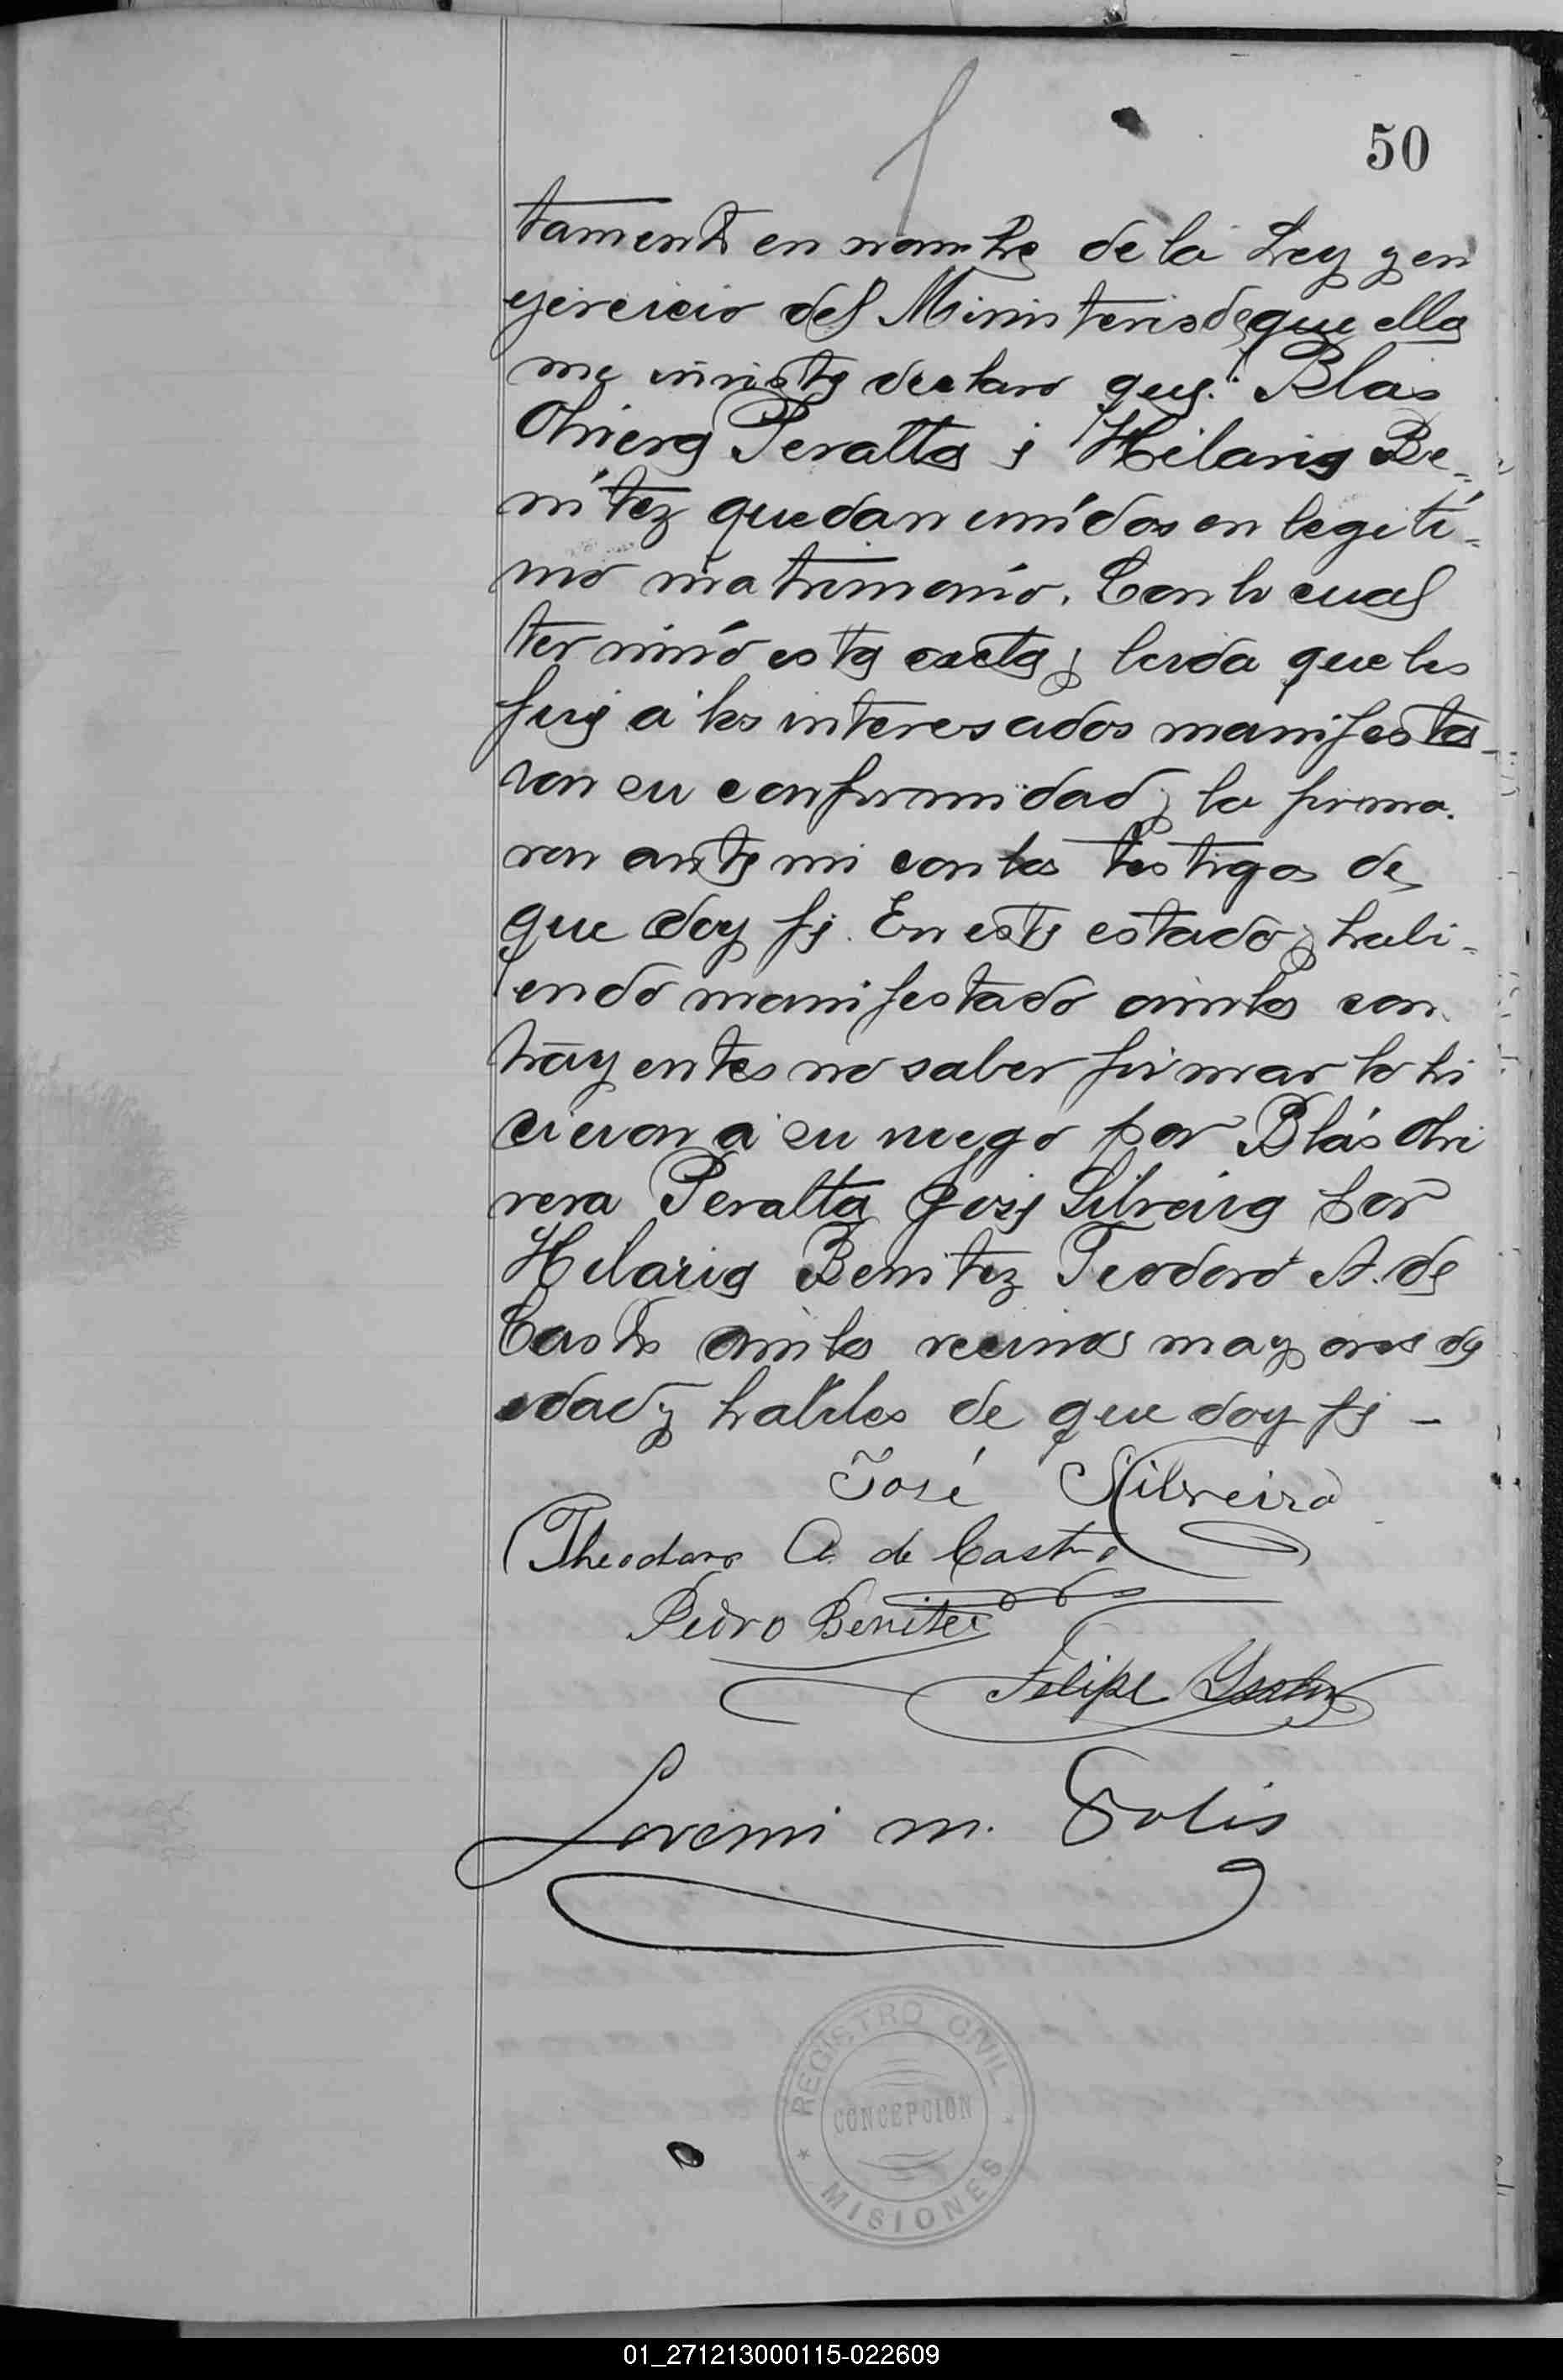 50
tamente en nombre de la Ley y en
ejercicio del Ministerio de que ella
me inviste declaro que: Blas
Olivera Peralta i Hilaria Be=
nítez quedan unidos en legíti=
mo matrimonio. Con lo cual
terminó esta acta y leida que les
fué á los interesados manifesta-
ron su conformidad y la firma-
ron ante mi con los testigos de
que doy fé. En este estado y habi=
endo manifestado ambos con
trayentes no saber firmar lo hi
cieron á su ruego por Blás Oli
vera Peralta José Silveira por
Hilaria Benitez Teodoro A. de
Castro ambos vecinos mayores de
edad y habiles de que doy fé -
José Silveira
Theodoro A. de Castro
Pedro Benitez
Felipe
m. Solis
REGISTRO CIVIL
CONCEPCION
* MISIONES *
01_271213000115-022609